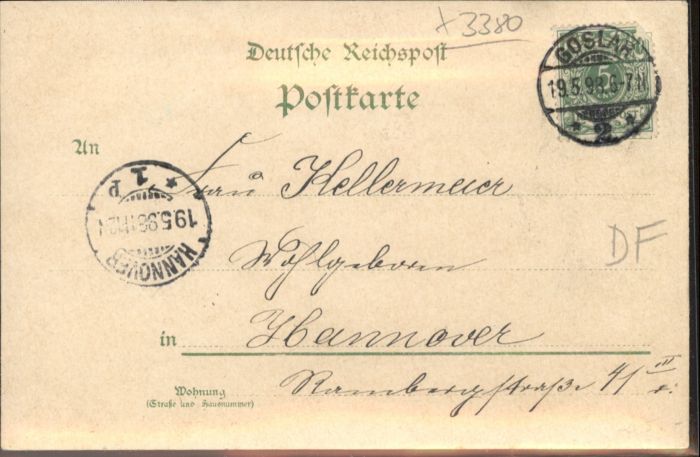 x 3380
Deutsche Reichspost
Postkarte
GOSLAR
19.5.98.6-7N
* 2 *
An
Frau Kellermeier
Wohlgeboren
DF
HANNOVER
19.5.98
* 1 P
in Hannover
Rambergstraße 4/III r.
Wohnung
(Straße und Hausnummer)